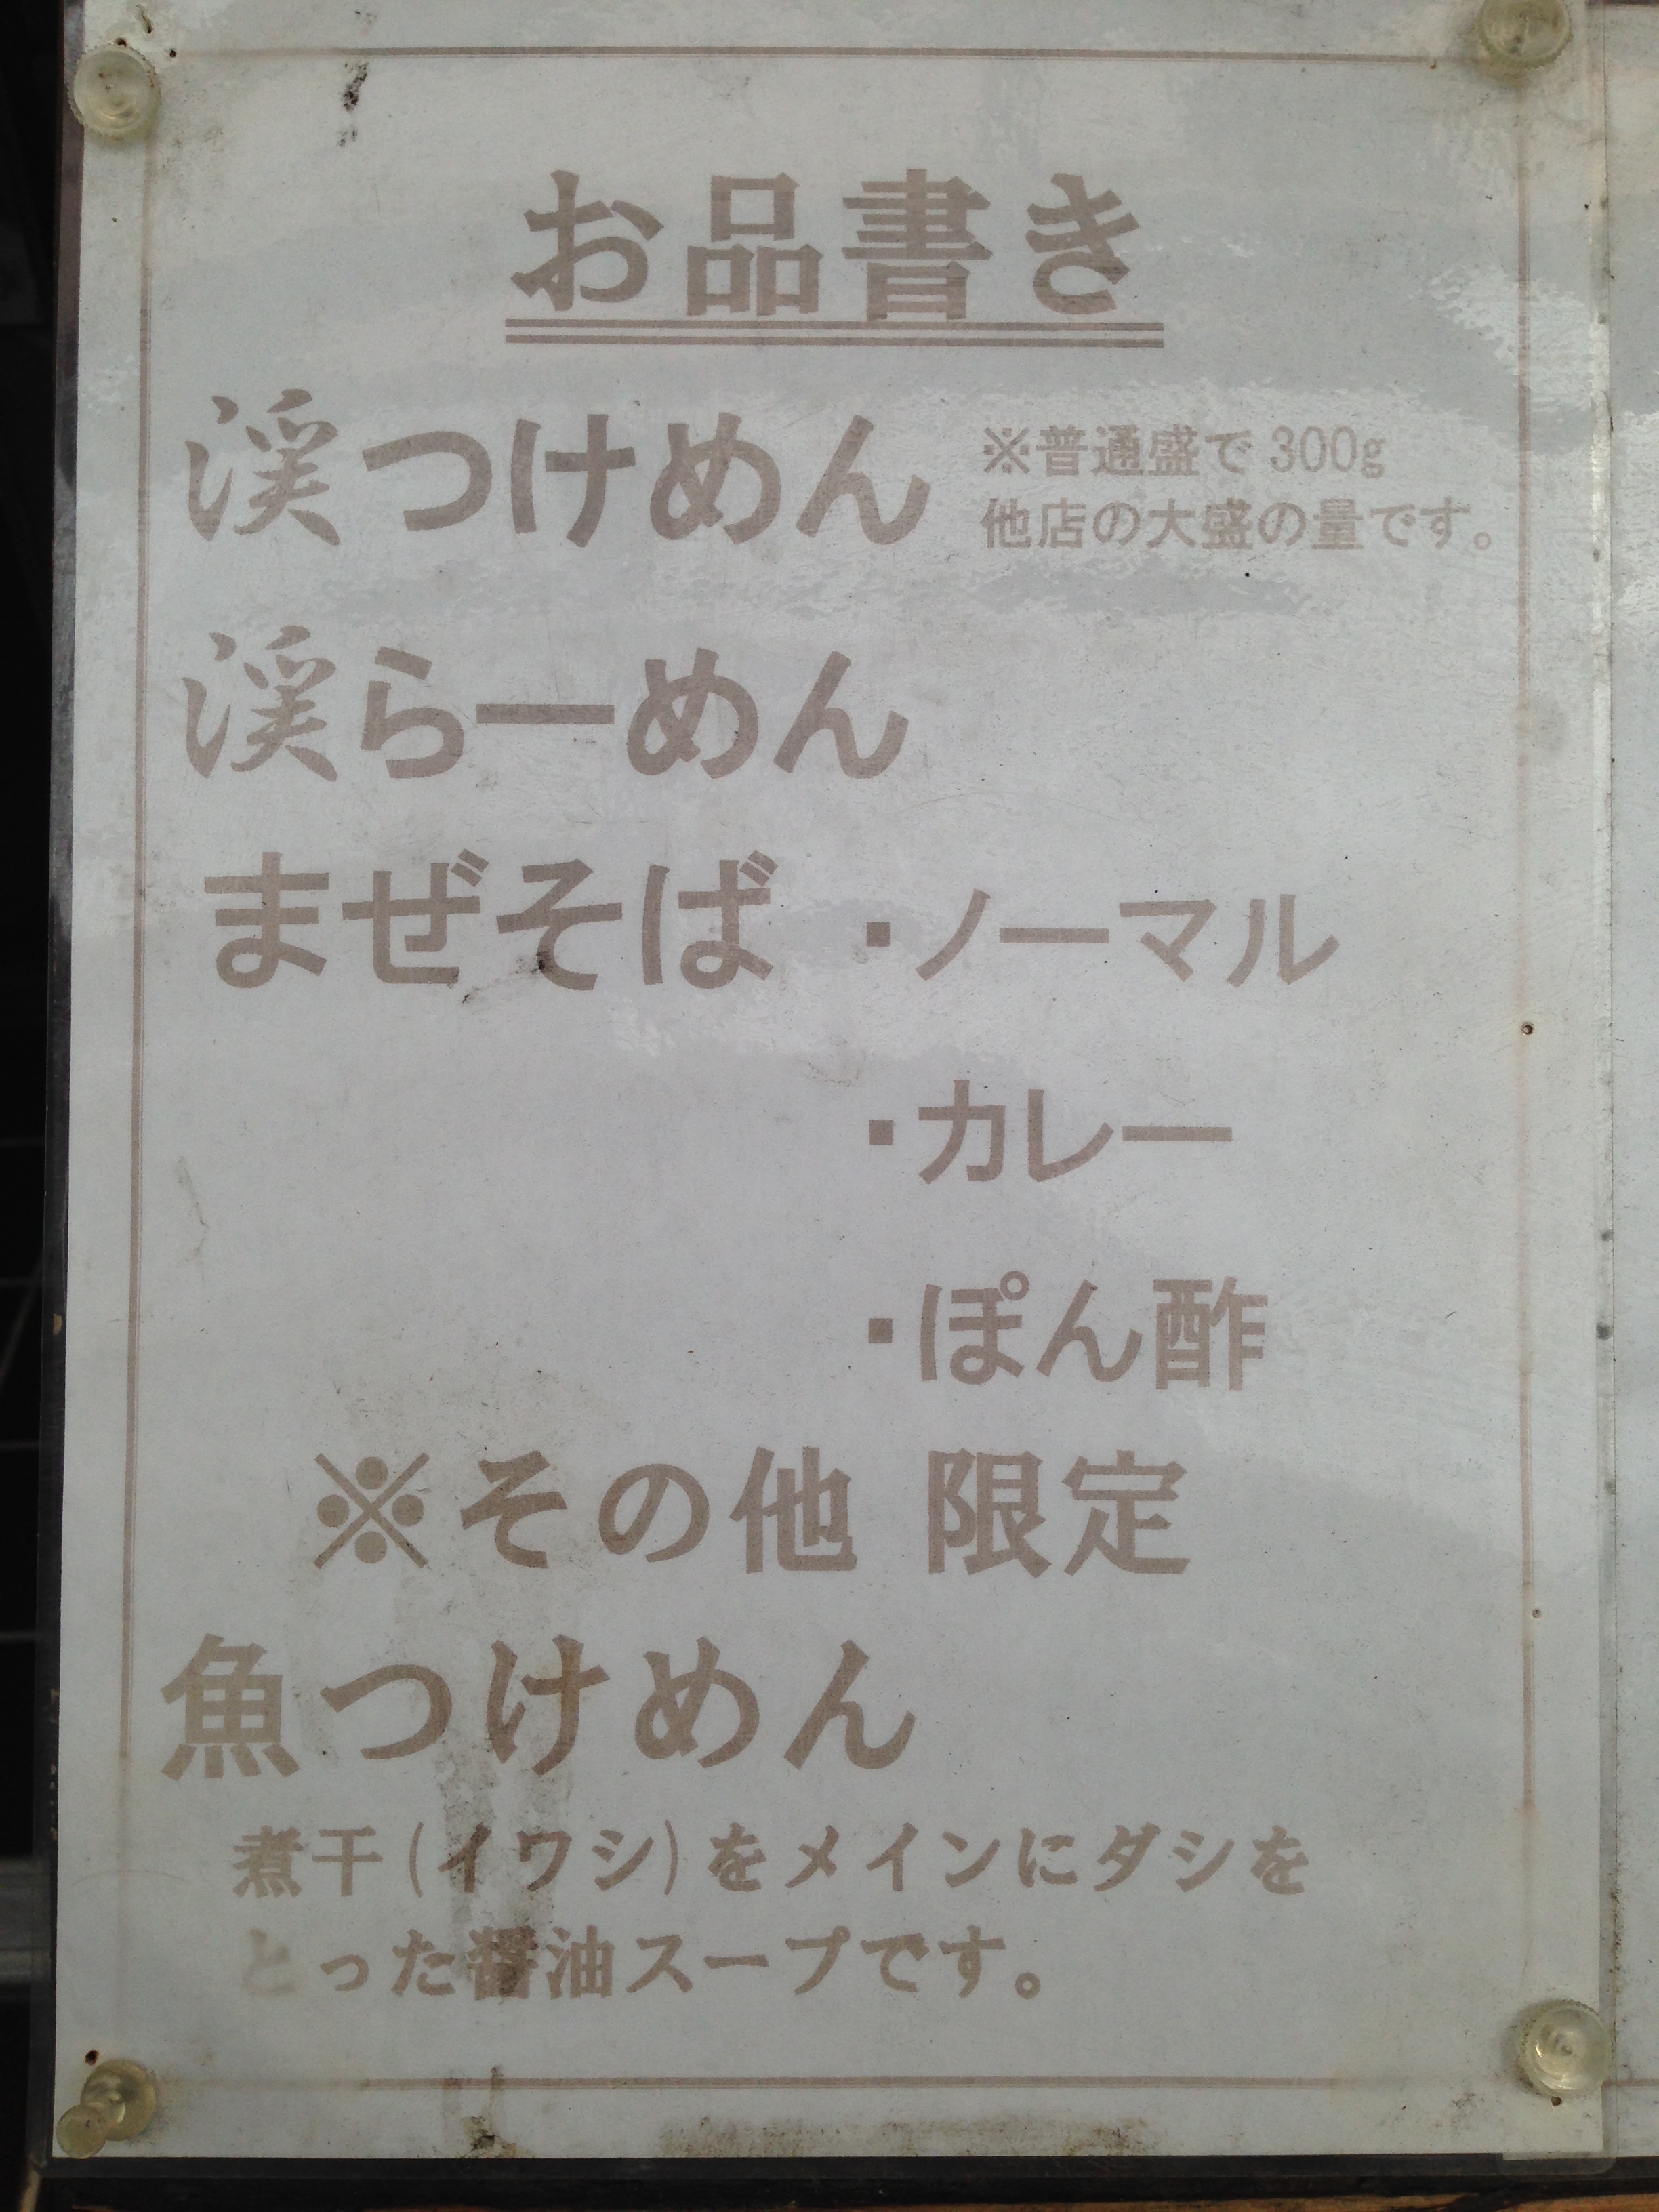 お品書き
渓つけめん ※普通盛で300g
他店の大盛の量です。
渓らーめん
まぜそば ・ノーマル
・カレー
・ぽん酢
※その他 限定
魚つけめん
煮干(イワシ)をメインにダシを
とった醤油スープです。